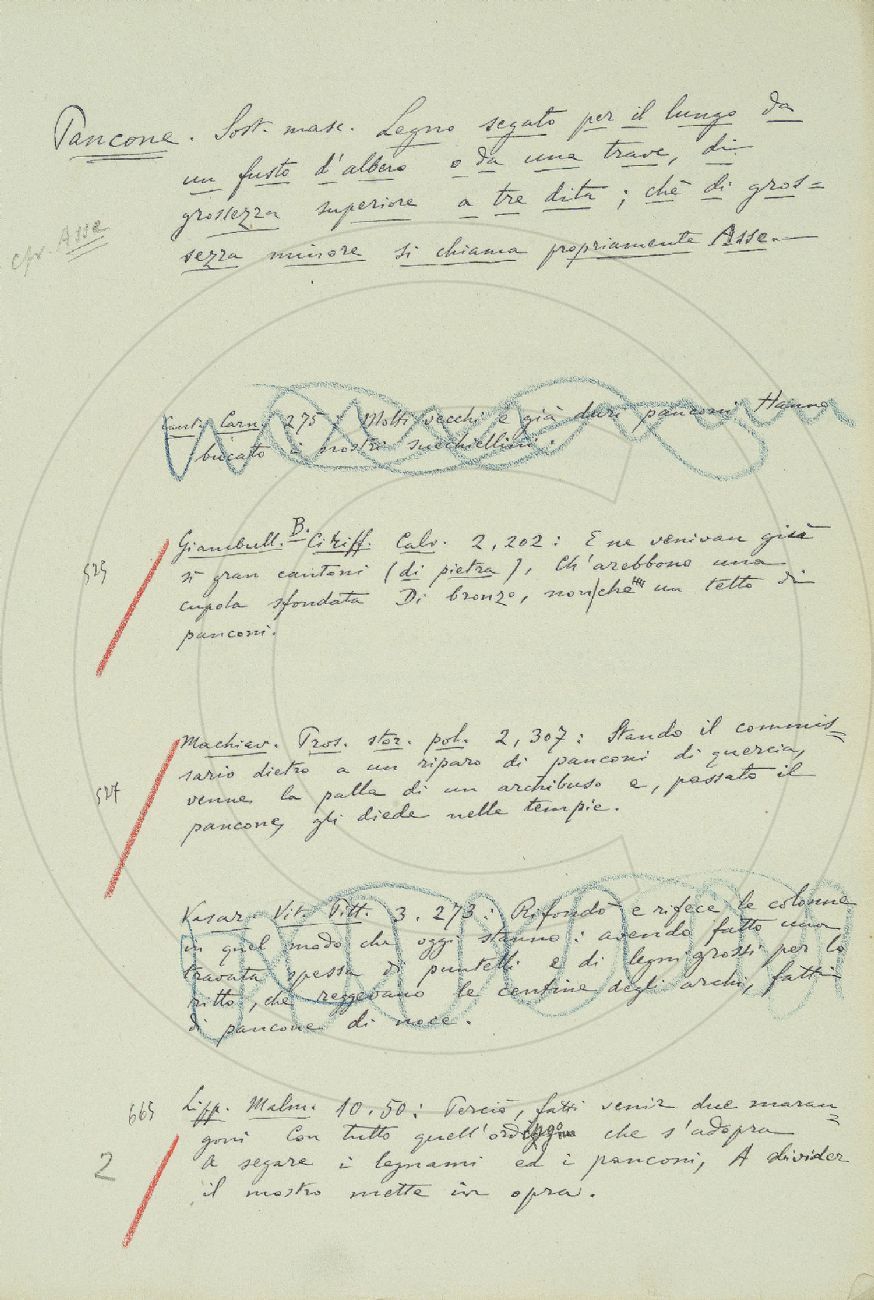 Pancone. Sost. masc. Legno segato per il lungo da
un fusto d'albero o da una trave, di
grossezza superiore a tre dita; chè di gros=
sezza minore si chiama propriamente Asse.—
cfr. Asse
Cant. Carn. 275: Molti vecchi e già duri panconi Hanno
bucato i nostri succhiellini.
Giambull. B. Ciriff. Calv. 2, 202: E ne venivan giù
525
sì gran cantoni (di pietra), Ch'arebbono una
cupola sfondata Di bronzo, non che un tetto di
panconi.
Machiav. Pros. stor. pol. 2, 307: Stando il commis=
sario dietro a un riparo di panconi di quercia,
527
venne la palla di un archibuso e, passato il
pancone, gli diede nelle tempie.
Vasar. Vit. Pitt. 3. 273: Rifondò e rifece le colonne
in quel modo che oggi stanno: avendo fatto una
travata spessa di puntelli e di legni grossi per lo
ritto, che reggevano le centine degli archi, fatti
di pancone di noce.
665
Lipp. Malm. 10. 50: Perciò, fatti venir due maran=
goni Con tutto quell'ordigno che s'adopra
2
A segare i legnami ed i panconi, A divider
il mostro mette in opra.